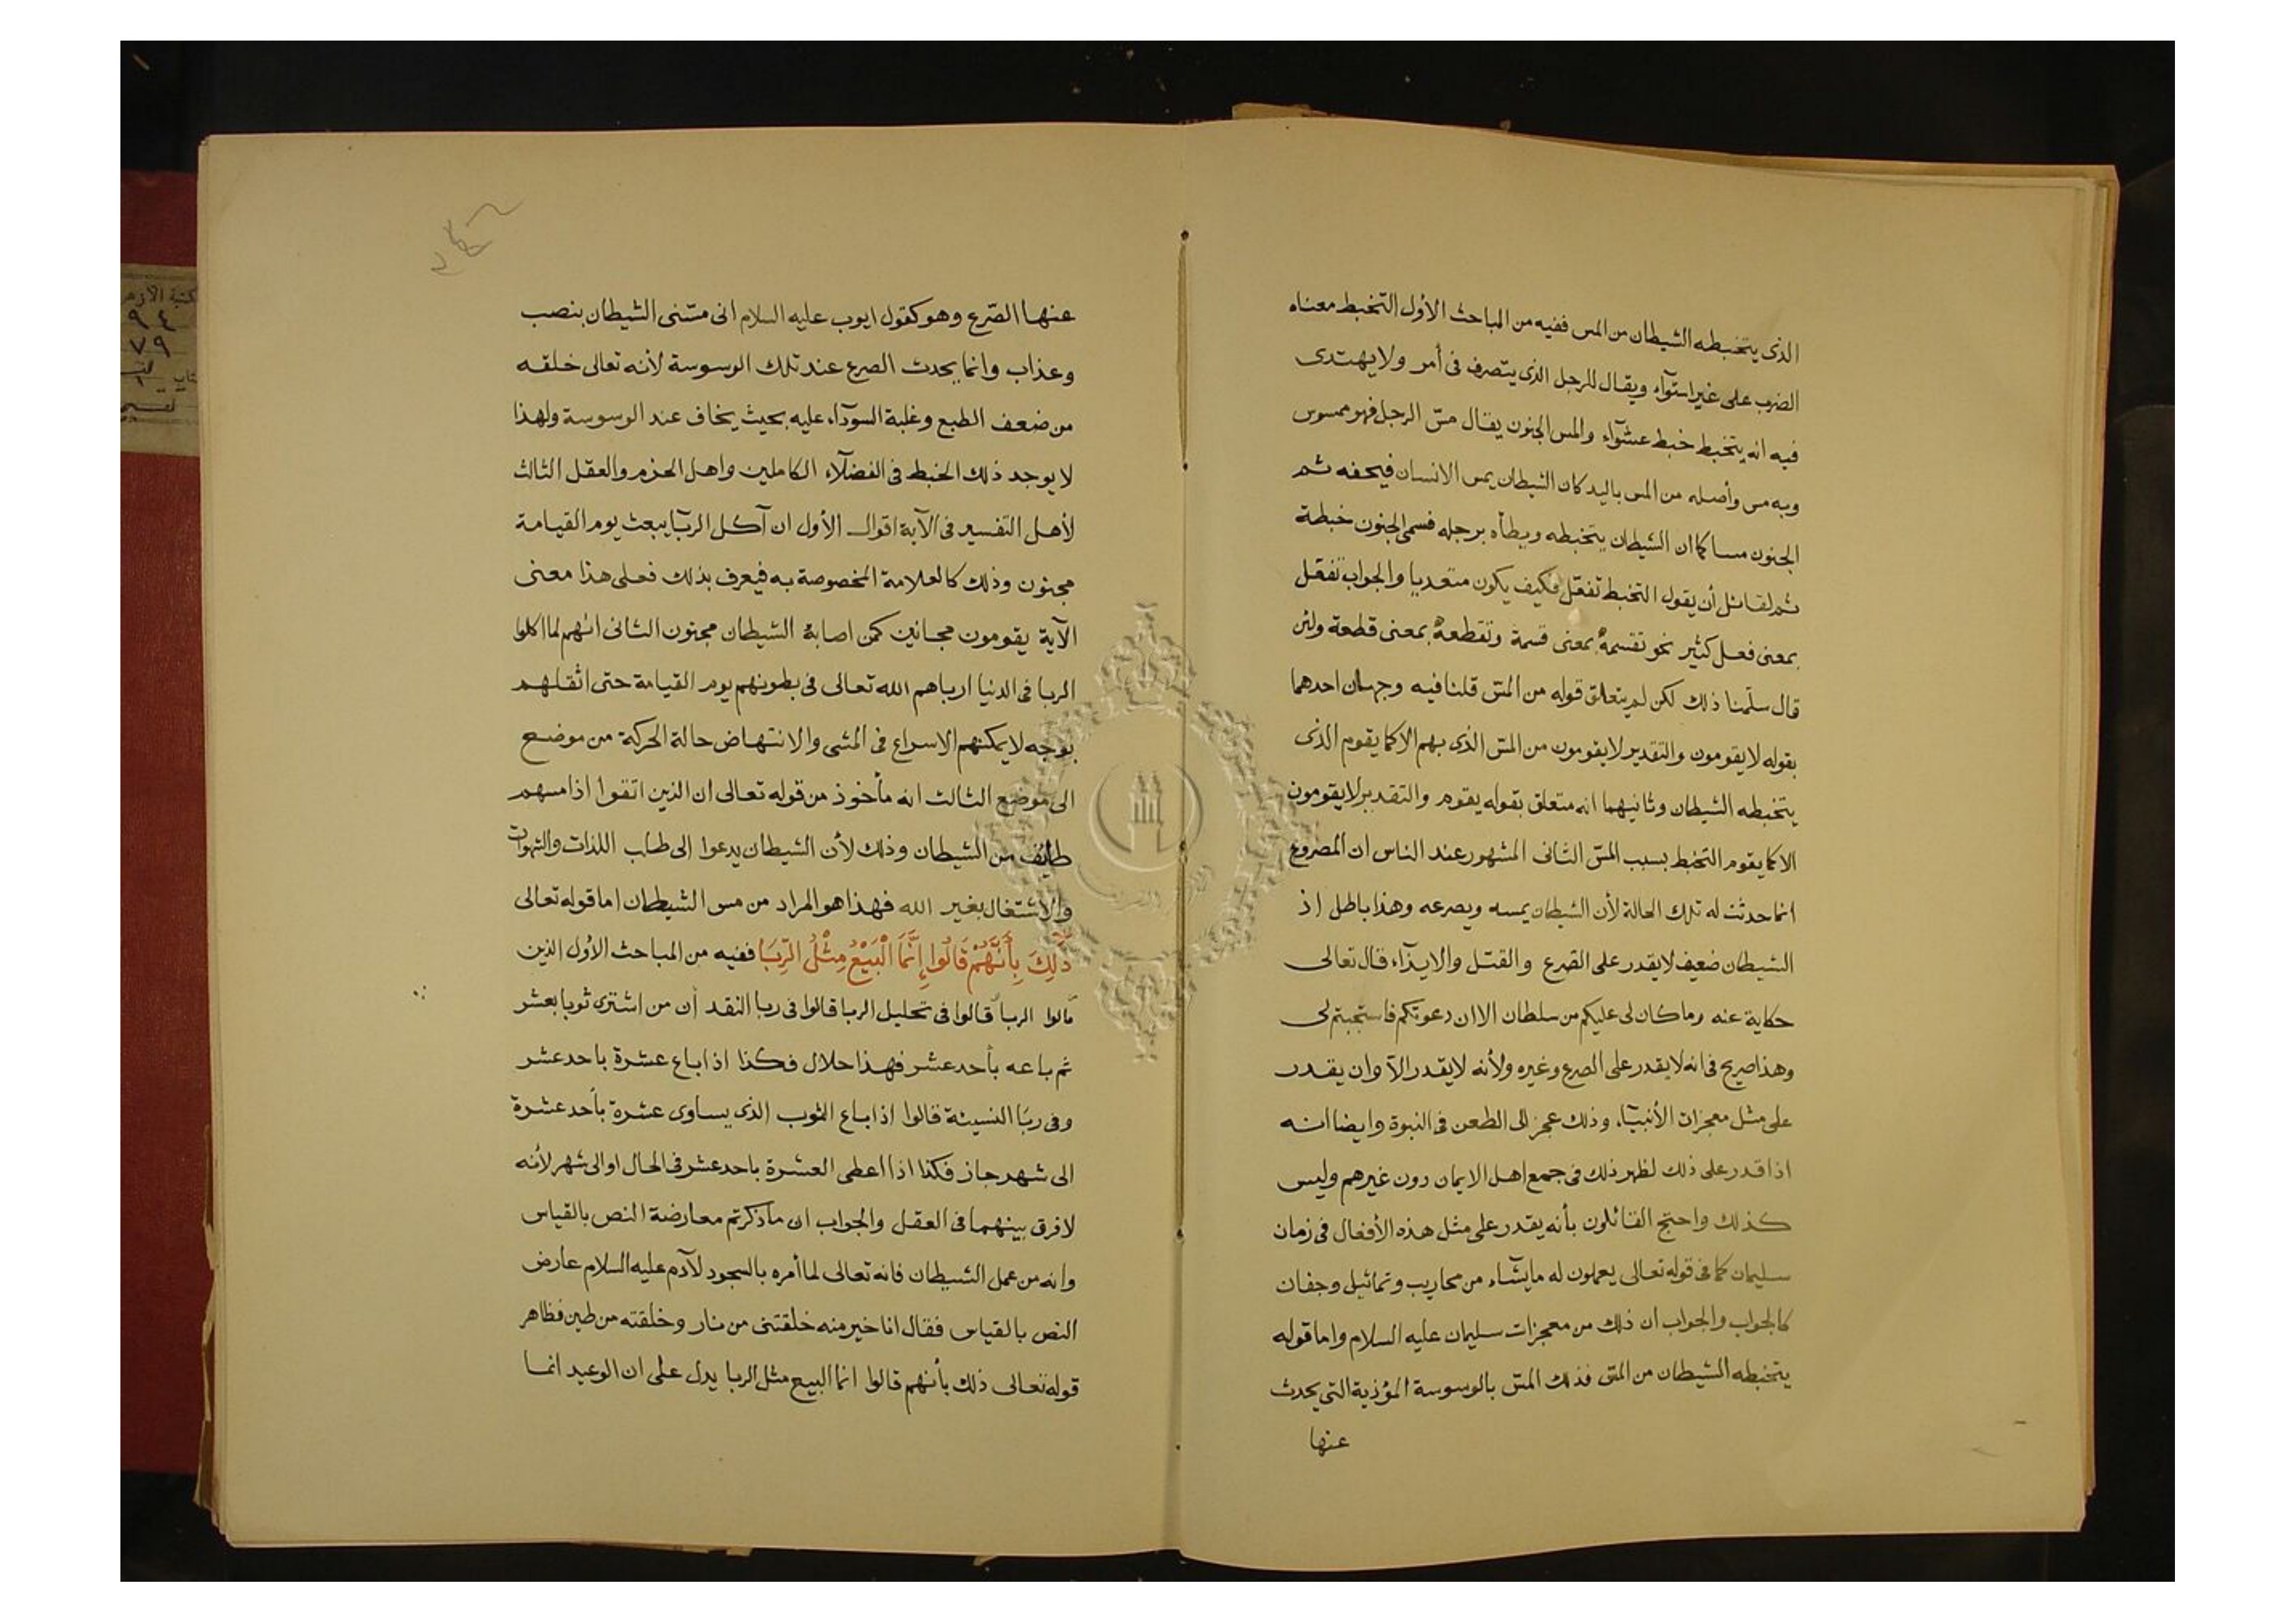 الذى يتخبطه الشيطان من المس ففيه من المباحث الأول التخبط معناه
الضرب على غير استوآء ويقال للرجل الذى يتصرف فى أمر ولا يهتدى
فيه انه يتخبط خبط عشوآء والمس الجنون يقال مسّ الرجل فهو ممسوس
وبه مس وأصله من المس باليد كان الشيطان يمس الانسان فيحفه ثم
الجنون مسا كما ان الشيطان يتخبطه ويطأه برجله فسمى الجنون خبطة
ثم لقائل أن يقول التخبط تفعّل فكيف يكون متعديا والجواب تفعّل
بمعنى فعل كثير نحو تقسمه بمعنى قسمة وتقطعه بمعنى قطعة ولئن
قال سلّمنا ذلك لكن لم يتعلق قوله من المسّ قلنا فيه وجهان احدهما
بقوله لا يقومون والتقدير لا يقومون من المسّ الذى بهم الا كما يقوم الذى
يتخبطه الشيطان وثانيهما انه متعلق بقوله يقوم والتقدير لا يقومون
الا كما يقوم التخبط بسبب المسّ الثانى المشهور عند الناس ان المصروع
انما حدثت له تلك الحالة لأن الشيطان يمسه ويصرعه وهذا باطل اذ
الشيطان ضعيف لا يقدر على الصرع والقتل والايذآء قال تعالى
حكاية عنه وما كان لى عليكم من سلطان الا ان دعوتكم فاستجبتم لى
وهذا صريح فى انه لا يقدر على الصرع وغيره ولأنه لا يقدر الا وان يقدر
على مثل معجزات الأنبيآء وذلك عجز الى الطعن فى النبوة وايضا انه
اذا قدر على ذلك لظهر ذلك فى جمع اهل الايمان دون غيرهم وليس
كذلك واحتج القائلون بأنه يقدر على مثل هذه الأفعال فى زمان
سليمان كما فى قوله تعالى يعملون له ما يشآء من محاريب وتماثيل وجفان
كالجواب والجواب ان ذلك من معجزات سليمان عليه السلام واما قوله
يتخبطه الشيطان من المسّ فذلك المسّ بالوسوسة المؤذية التى يحدث
عنها
عنها الصّرع وهو كقول ايوب عليه السلام انى مسّنى الشيطان بنصب
وعذاب وانما يحدث الصرع عند تلك الوسوسة لأنه تعالى خلقه
من ضعف الطبع وغلبة السودآء عليه بحيث يخاف عند الوسوسة ولهذا
لا يوجد ذلك الخبط فى الفضلآء الكاملين واهل الحزم والعقل الثالث
لأهل التفسير فى الآية اقوال الأول ان آكل الربا يبعث يوم القيامة
مجنون وذلك كالعلامة المخصوصة به فيعرف بذلك فعلى هذا معنى
الآية يقومون مجانين كمن اصابة الشيطان مجنون الثانى انهم لما اكلوا
الربا فى الدنيا ارباهم الله تعالى فى بطونهم يوم القيامة حتى اثقلهم
بوجه لا يمكنهم الاسراع فى المشى والانتهاض حالة الحركة من موضع
الى موضع الثالث انه مأخوذ من قوله تعالى ان الذين اتقوا اذا مسهم
طايف من الشيطان وذلك لأن الشيطان يدعوا الى طلب اللذات والشهوات
والاشتغال بغير الله فهذا هو المراد من مس الشيطان اما قوله تعالى
ذَلِكَ بِأَنَّهُمْ قَالُوا إِنَّمَا الْبَيْعُ مِثْلُ الرِّبَا ففيه من المباحث الأول الذين
قالوا الربا قالوا فى تحليل الربا قالوا فى ربا النقد أن من اشترى ثوبا بعشر
ثم باعه بأحد عشر فهذا حلال فكذا اذا باع عشرة باحد عشر
وفى ربا النسيئة قالوا اذا باع الثوب الذى يساوى عشرة بأحد عشرة
الى شهر جاز فكذا اذا اعطى العشرة باحد عشر فى الحال او الى شهر لأنه
لا فرق بينهما فى العقل والجواب ان ما ذكرتم معارضة النص بالقياس
وانه من عمل الشيطان فانه تعالى لما أمره بالسجود لآدم عليه السلام عارض
النص بالقياس فقال انا خير منه خلقتنى من نار وخلقته من طين فظاهر
قوله تعالى ذلك بأنهم قالوا انما البيع مثل الربا يدل على ان الوعيد انما